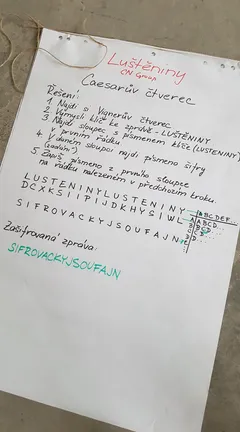 Luštěniny
ON Group
Caesarův čtverec
Řešení:
1 Najdi si Vigenerův čtverec
2 Vymysli klíč ke zprávě - LUŠTĚNINY
3 Najdi sloupec s písmenem klíče (LUSTENINY)
v prvním řádku.
4 V daném sloupci najdi písmeno šifry
5 Zapiš písmeno z prvního sloupce
na řádku nalezeném v předchozím kroku.
LUSTENINYLUSTENINY
DCXKSIIPIJDKHYSIWL
SIFROVACKYJSOUFAJN
ABCDEF
A ABCD
Zašifrovaná zpráva:
SIFROVACKYJSOUFAJN